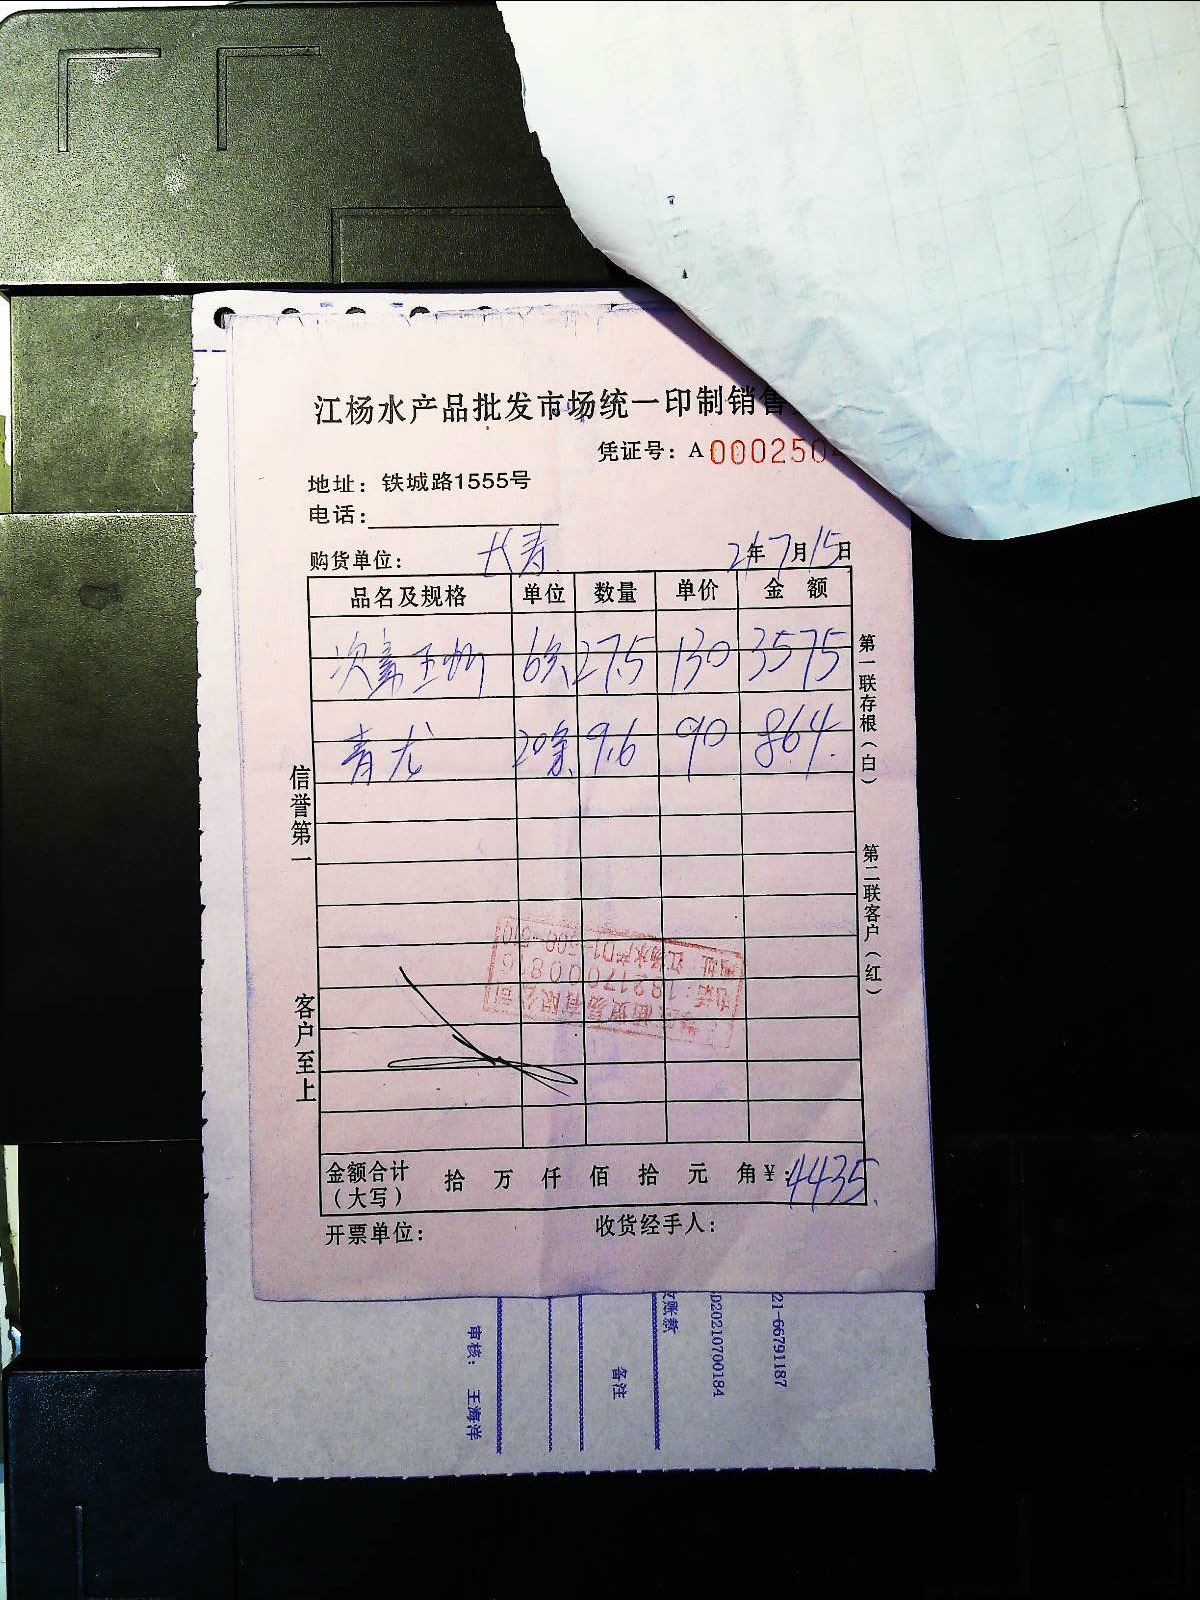 江杨水产品批发市场统一印制销售
凭证号：A 0002504
地址：铁城路1555号
电话：
购货单位：长寿 21年7月15日
品名及规格 单位 数量 单价 金额
6条 27.5 130 3575
青龙 20条 9.6 90 864.
信誉第一
客户至上
第一联存根（白）
第二联客户（红）
金额合计（大写） 拾 万 仟 佰 拾 元 角 ¥：4435.
开票单位： 收货经手人：
审核： 王海洋
备注
账款
D20210700184
21-66791187